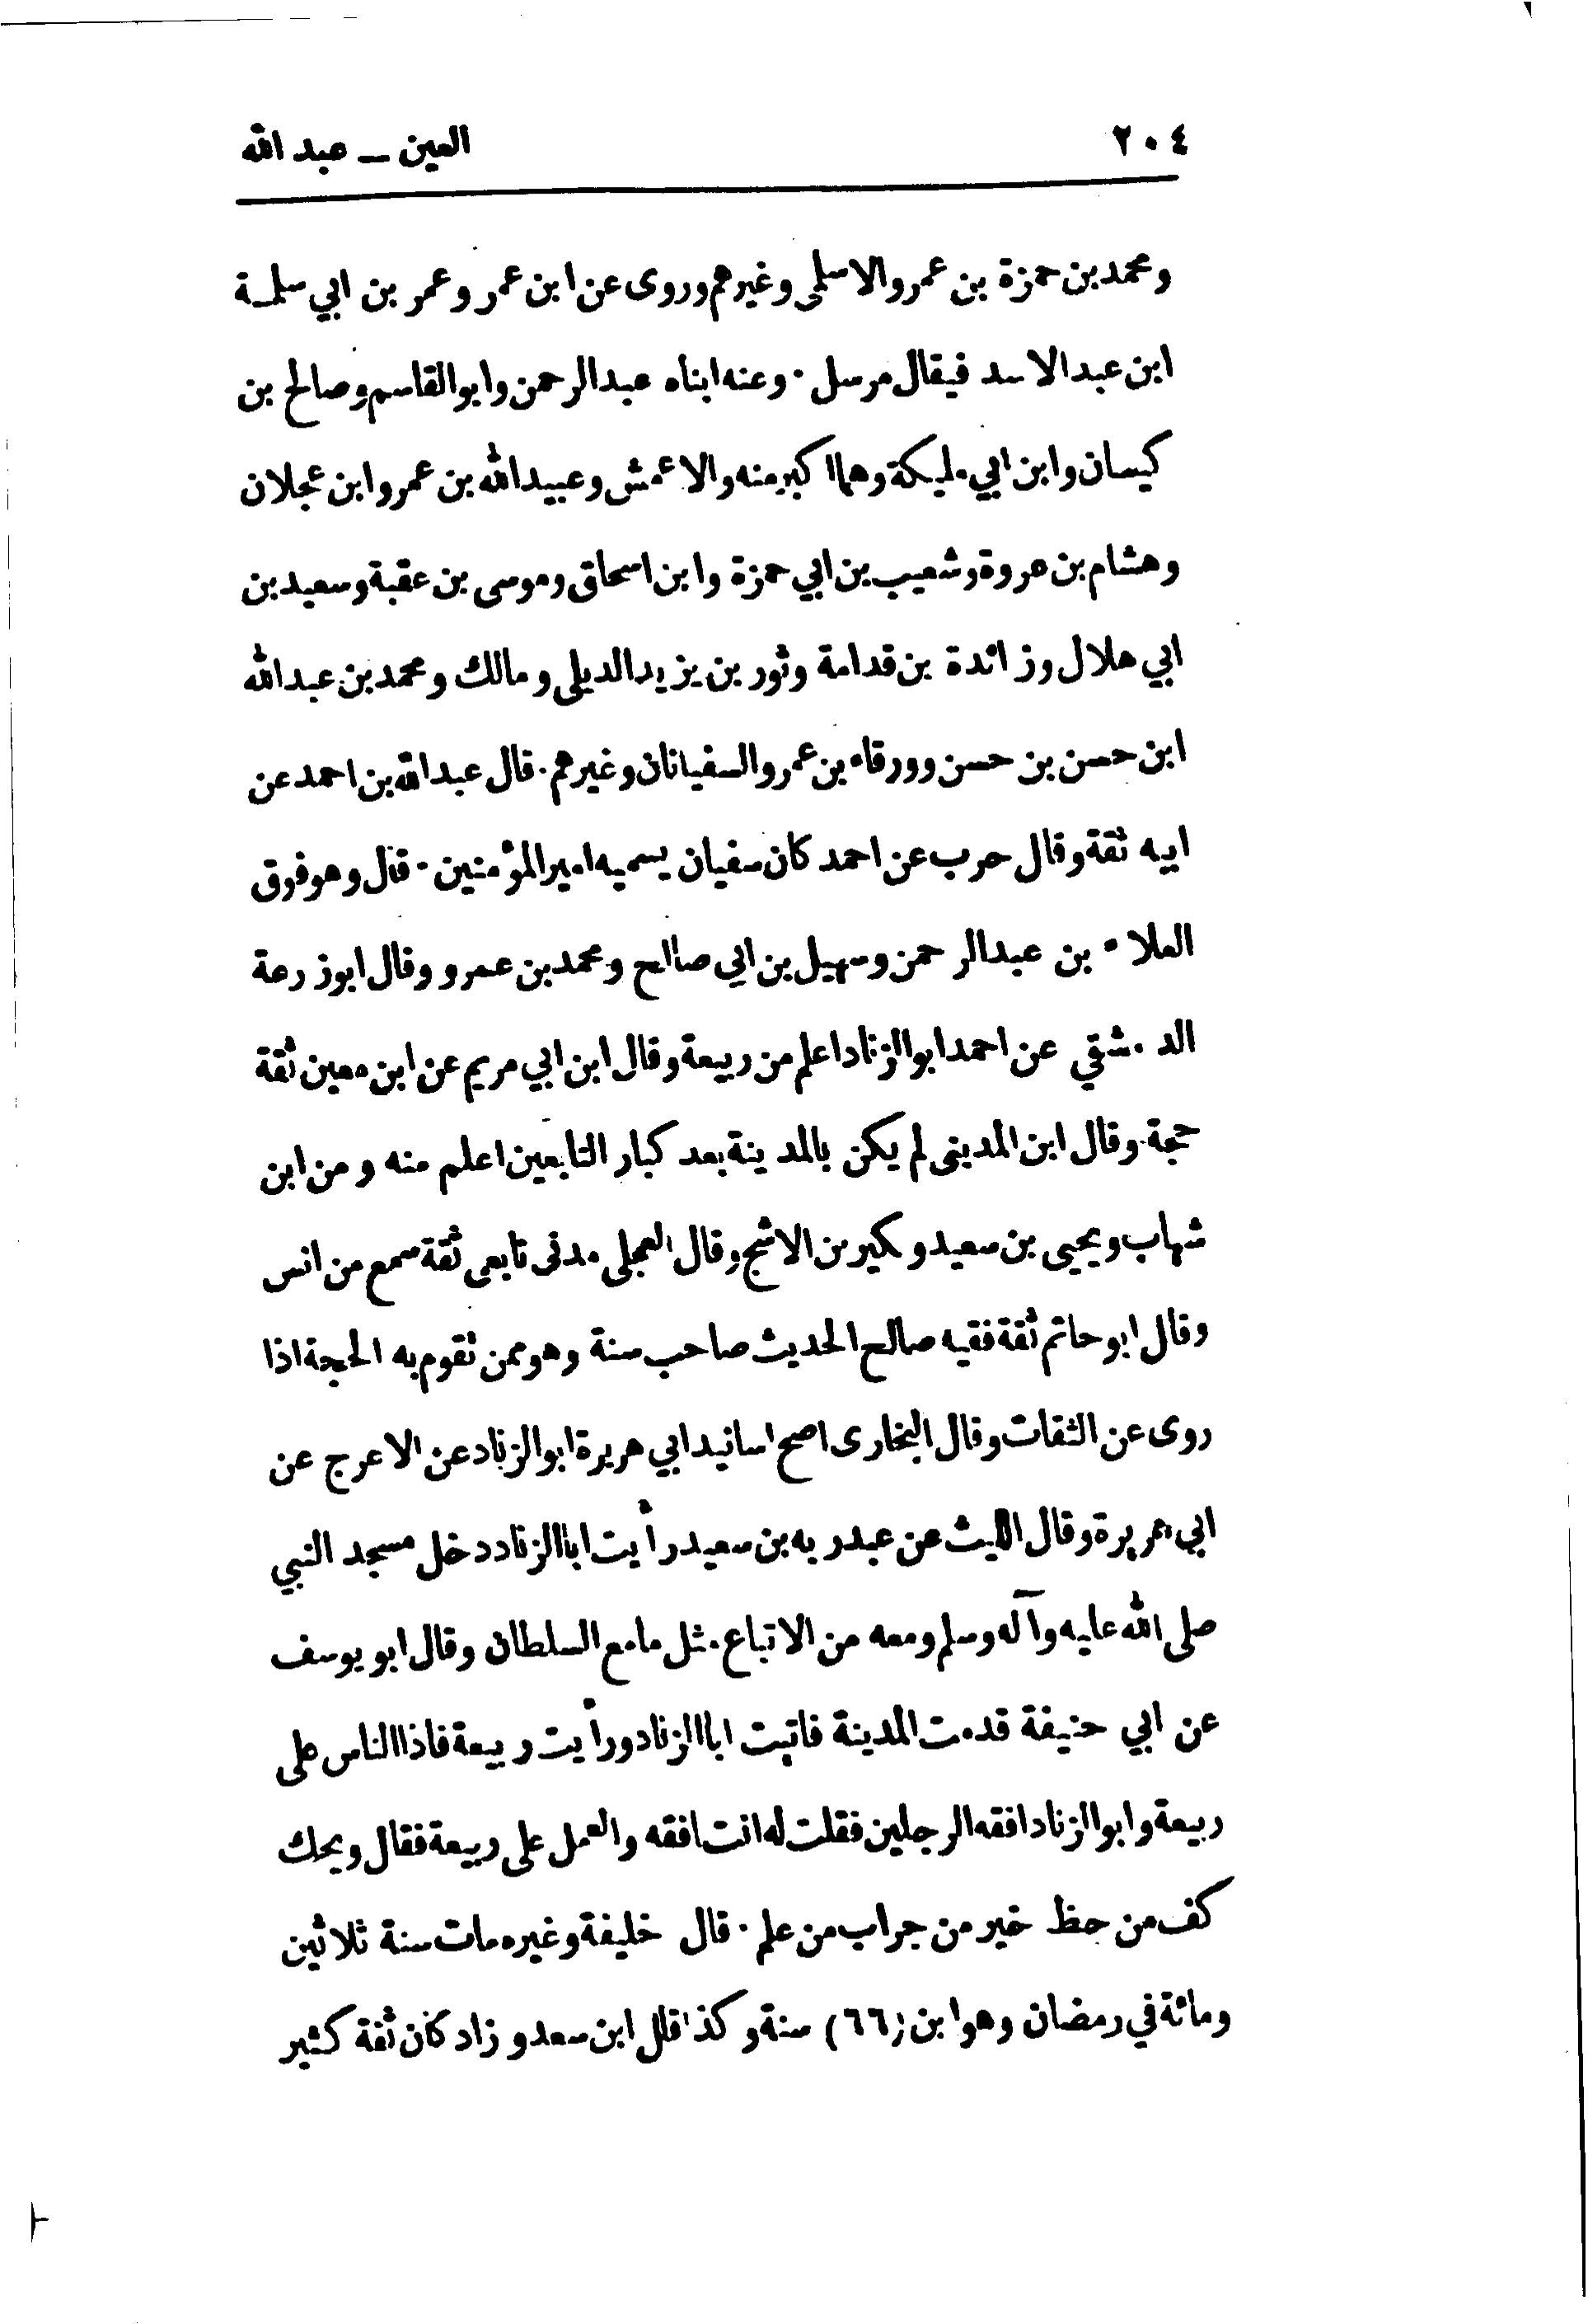 ٢٠٤ العين ـ عبد الله
ومحمد بن حمزة بن عمرو الاسلمى وغيرهم وروى عن ابن عمر وعمر بن ابي سلمة
ابن عبد الاسد فيقال مرسل . وعنه ابناه عبد الرحمن وابو القاسم وصالح بن
كيسان وابن ابي مليكة وهما اكبر منه والاعمش وعبيد الله بن عمر وابن عجلان
وهشام بن عروة وشعيب بن ابي حمزة وابن اسحاق وموسى بن عقبة وسعيد بن
ابي هلال وزائدة بن قدامة وثور بن يزيد الديلى ومالك ومحمد بن عبد الله
ابن حسن بن حسن وورقاء بن عمر والسفيانان وغيرهم . قال عبد الله بن احمد عن
ابيه ثقة وقال حرب عن احمد كان سفيان يسميه امير المؤمنين . قال وهو فوق
العلاء بن عبد الرحمن وسهيل بن ابي صالح ومحمد بن عمرو وقال ابو زرعة
الدمشقي عن احمد ابو الزناد اعلم من ربيعة وقال ابن ابي مريم عن ابن معين ثقة
حجة وقال ابن المدينى لم يكن بالمدينة بعد كبار التابعين اعلم منه ومن ابن
شهاب ويحيى بن سعيد وبكير بن الاشج وقال العجلى مدنى تابعى ثقة سمع من انس
وقال ابو حاتم ثقة فقيه صالح الحديث صاحب سنة وهو ممن تقوم به الحجة اذا
روى عن الثقات وقال البخارى اصح اسانيد ابي هريرة ابو الزناد عن الاعرج عن
ابي هريرة وقال الليث عن عبد ربه بن سعيد رأيت ابا الزناد دخل مسجد النبي
صلى الله عليه وآله وسلم ومعه من الاتباع مثل ما مع السلطان وقال ابو يوسف
عن ابي حنيفة قدمت المدينة فاتيت ابا الزناد ورأيت ربيعة فاذا الناس على
ربيعة وابو الزناد افقه الرجلين فقلت له انت افقه والعمل على ربيعة فقال ويحك
كف من حظ خير من جراب من علم . قال خليفة وغيره مات سنة ثلاثين
ومائة في رمضان وهو ابن (٦٦) سنة وكذا قال ابن سعد وزاد كان ثقة كثير